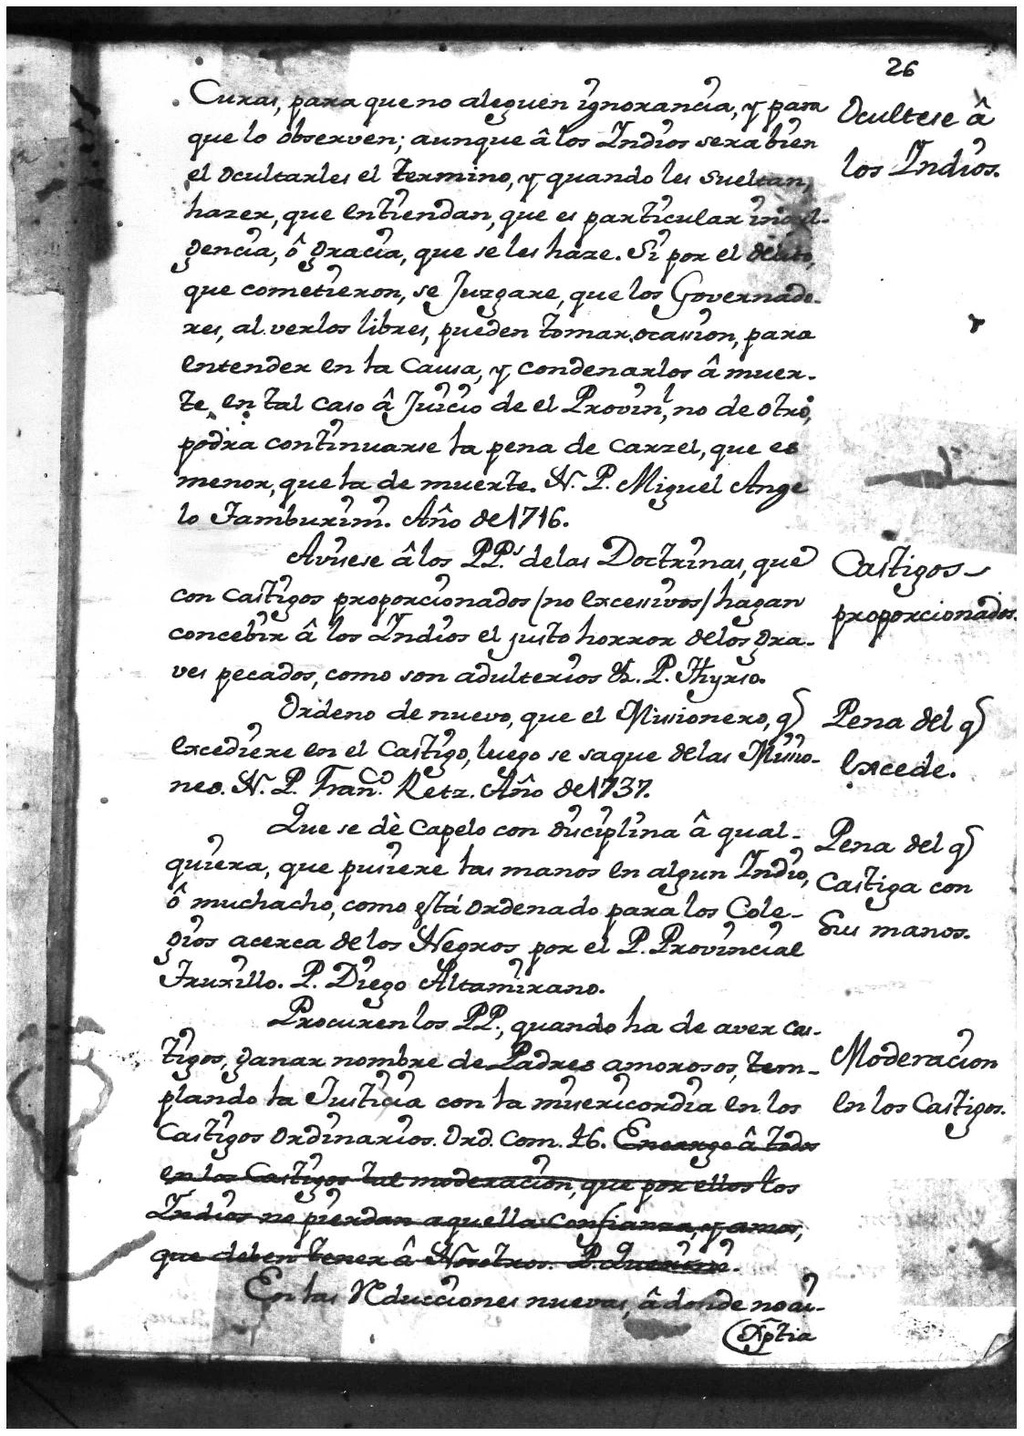 26
Curas, para que no aleguen ignorancia, y para
que lo observen; aunque â los Indios sera bien
el ocultarles el termino, y quando les sueltan,
hazer, que entiendan, que es particular indul-
gencia, ô gracia, que se les haze. Si por el delito,
que cometieron, se Juzgare, que los Governado-
res, al verlos libres, pueden tomar ocasion, para
entender en la Causa, y condenarlos â muer-
te, en tal caso â Juicio de el Provinl, no de otro,
podra continuarse la pena de carzel, que es
menor, que la de muerte. N. P. Miguel Ange
lo Tamburini. Año de 1716.
Ocultese â
los Indios.
Avisese â los PP.s de las Doctrinas, que
con castigos proporcionados (no excessivos) hagan
concebir â los Indios el justo horror de los gra-
ves pecados, como son adulterios &. P. Thyrso.
Castigos
proporcionados.
Ordeno de nuevo, que el Missionero, q
excediere en el castigo, luego se saque de las Missio-
nes. N. P. Franco. Retz. Año de 1737.
Pena del q
excede.
Que se dè Capelo con disciplina â qual-
quiera, que pusiere las manos en algun Indio,
ô muchacho, como está ordenado para los Cole-
gios acerca de los Negros por el P. Provincial
Truxillo. P. Diego Altamirano.
Pena del q
Castiga con
sus manos.
Procuren los PP., quando ha de aver cas-
tigos, ganar nombre de Padres amorosos, tem-
plando la Justicia con la misericordia en los
Castigos ordinarios. Ord. Com. 16. Encargo â todos
en los Castigos tal moderacion, que por ellos los
Indios no pierdan aquella confianza, y amor,
que deben tener â Nosotros. P. Querini.
Moderacion
en los Castigos.
En las Reducciones nuevas, â donde no ai
Xptia